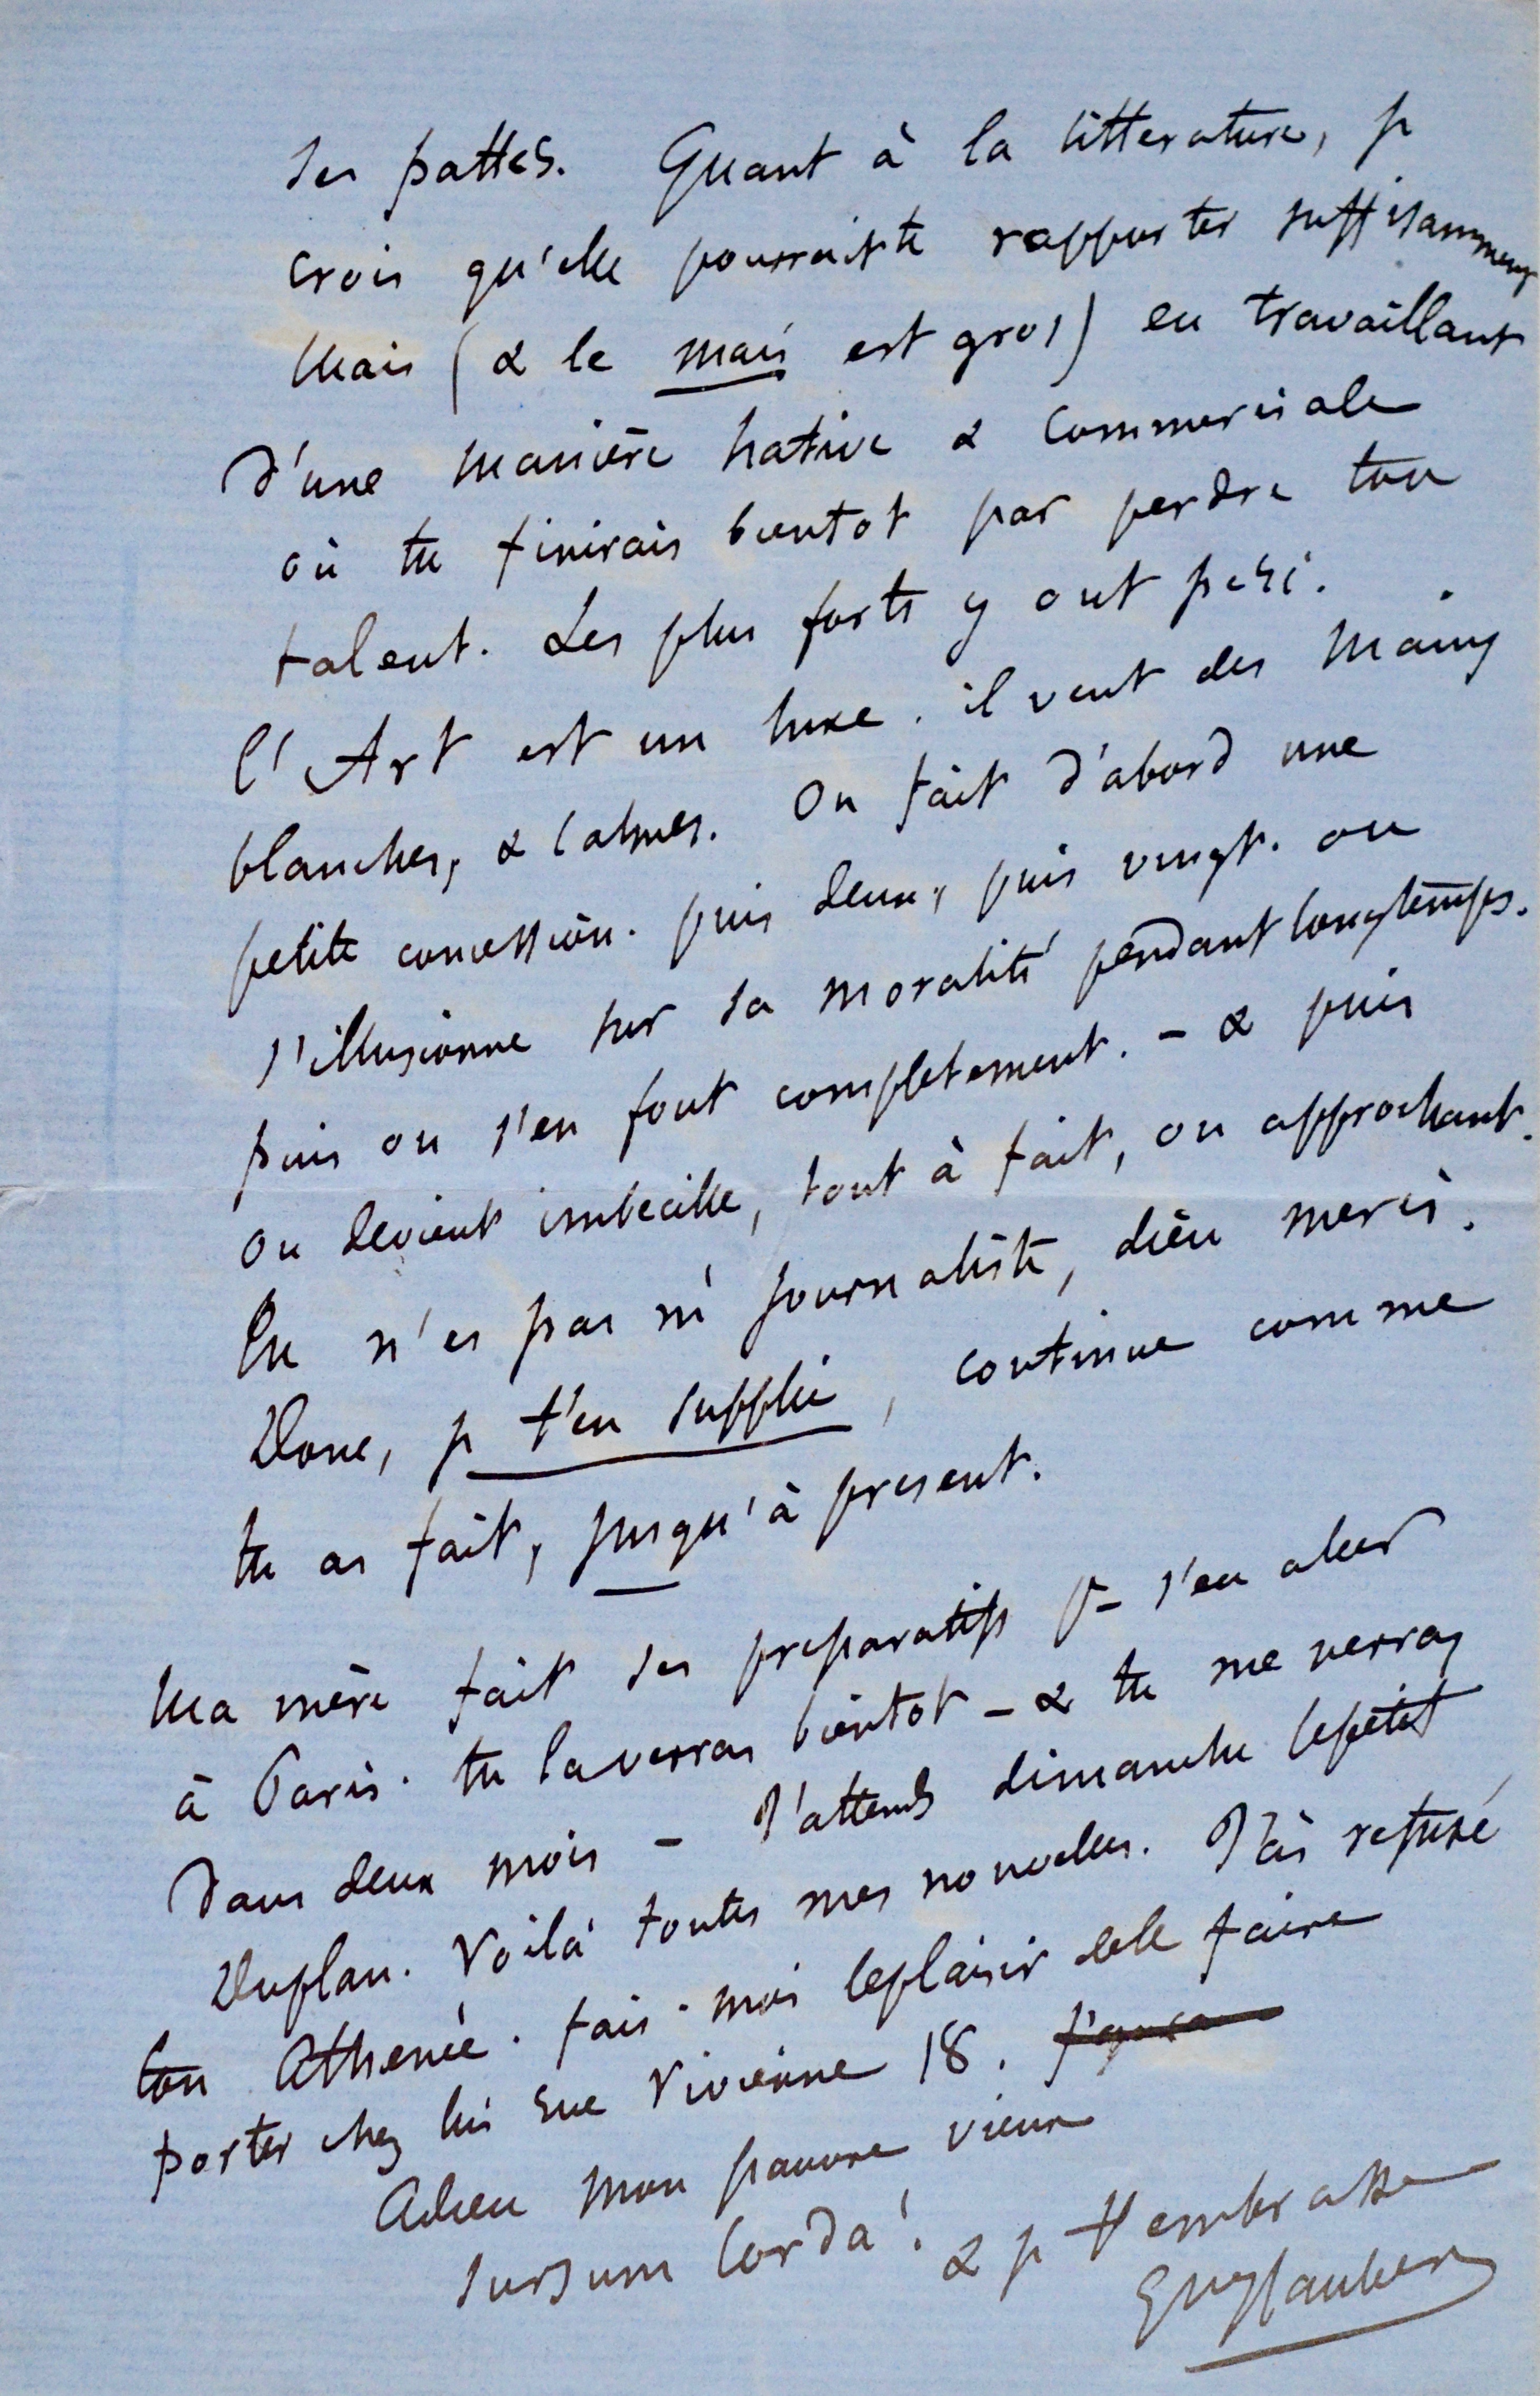 ses pattes. Quant à la litterature, je
crois qu'elle pourrait te rapporter suffisamment
mais (& le mais est gros) en travaillant
d'une manière hative & commerciale
où tu finirais bientot par perdre ton
talent. Les plus forts y ont peri.
l'Art est un luxe. il veut des mains
blanches, & calmes. On fait d'abord une
petite concession. puis deux, puis vingt. on
s'illusionne sur sa moralité pendant longtemps.
puis on s'en fout completement. - & puis
on devient imbecille, tout à fait, ou approchant.
Tu n'es pas né journaliste, dieu merci.
Donc, je t'en supplie, continue comme
tu as fait, jusqu'à present.
Ma mère fait ses preparatifs pr s'en aller
à Paris. tu la verras bientot - & tu me verras
dans deux mois - J'attends dimanche le petit
Duplan. Voilà toutes mes nouvelles. J'ai refusé
ton Athenée. fais-moi le plaisir de le faire
porter chez lui rue Vivienne 18.
Adieu mon pauvre vieux
sursum corda! & je t'embrasse
Gve Flaubert